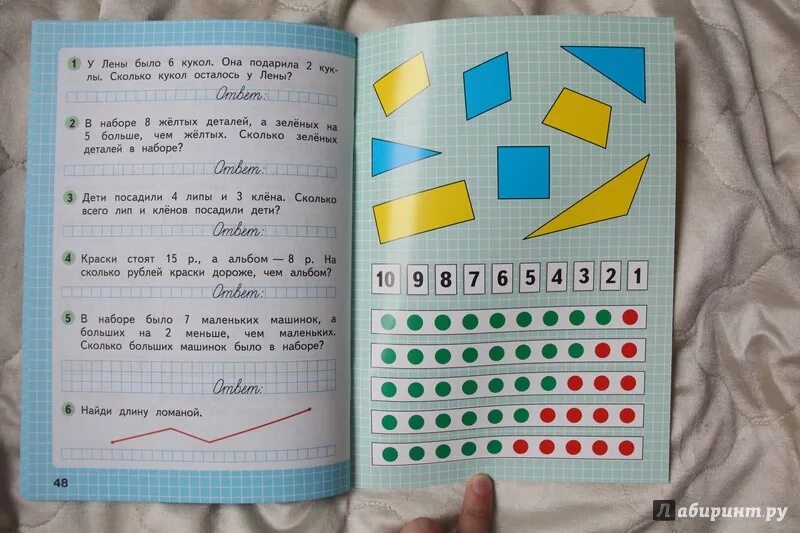 1 У Лены было 6 кукол. Она подарила 2 кук-
лы. Сколько кукол осталось у Лены?
Ответ:
2 В наборе 8 жёлтых деталей, а зелёных на
5 больше, чем жёлтых. Сколько зелёных
деталей в наборе?
Ответ:
3 Дети посадили 4 липы и 3 клёна. Сколько
всего лип и клёнов посадили дети?
Ответ:
4 Краски стоят 15 р., а альбом — 8 р. На
сколько рублей краски дороже, чем альбом?
Ответ:
5 В наборе было 7 маленьких машинок, а
больших на 2 меньше, чем маленьких.
Сколько больших машинок было в наборе?
Ответ:
6 Найди длину ломаной.
48
10 9 8 7 6 5 4 3 2 1
Лабиринт.ру